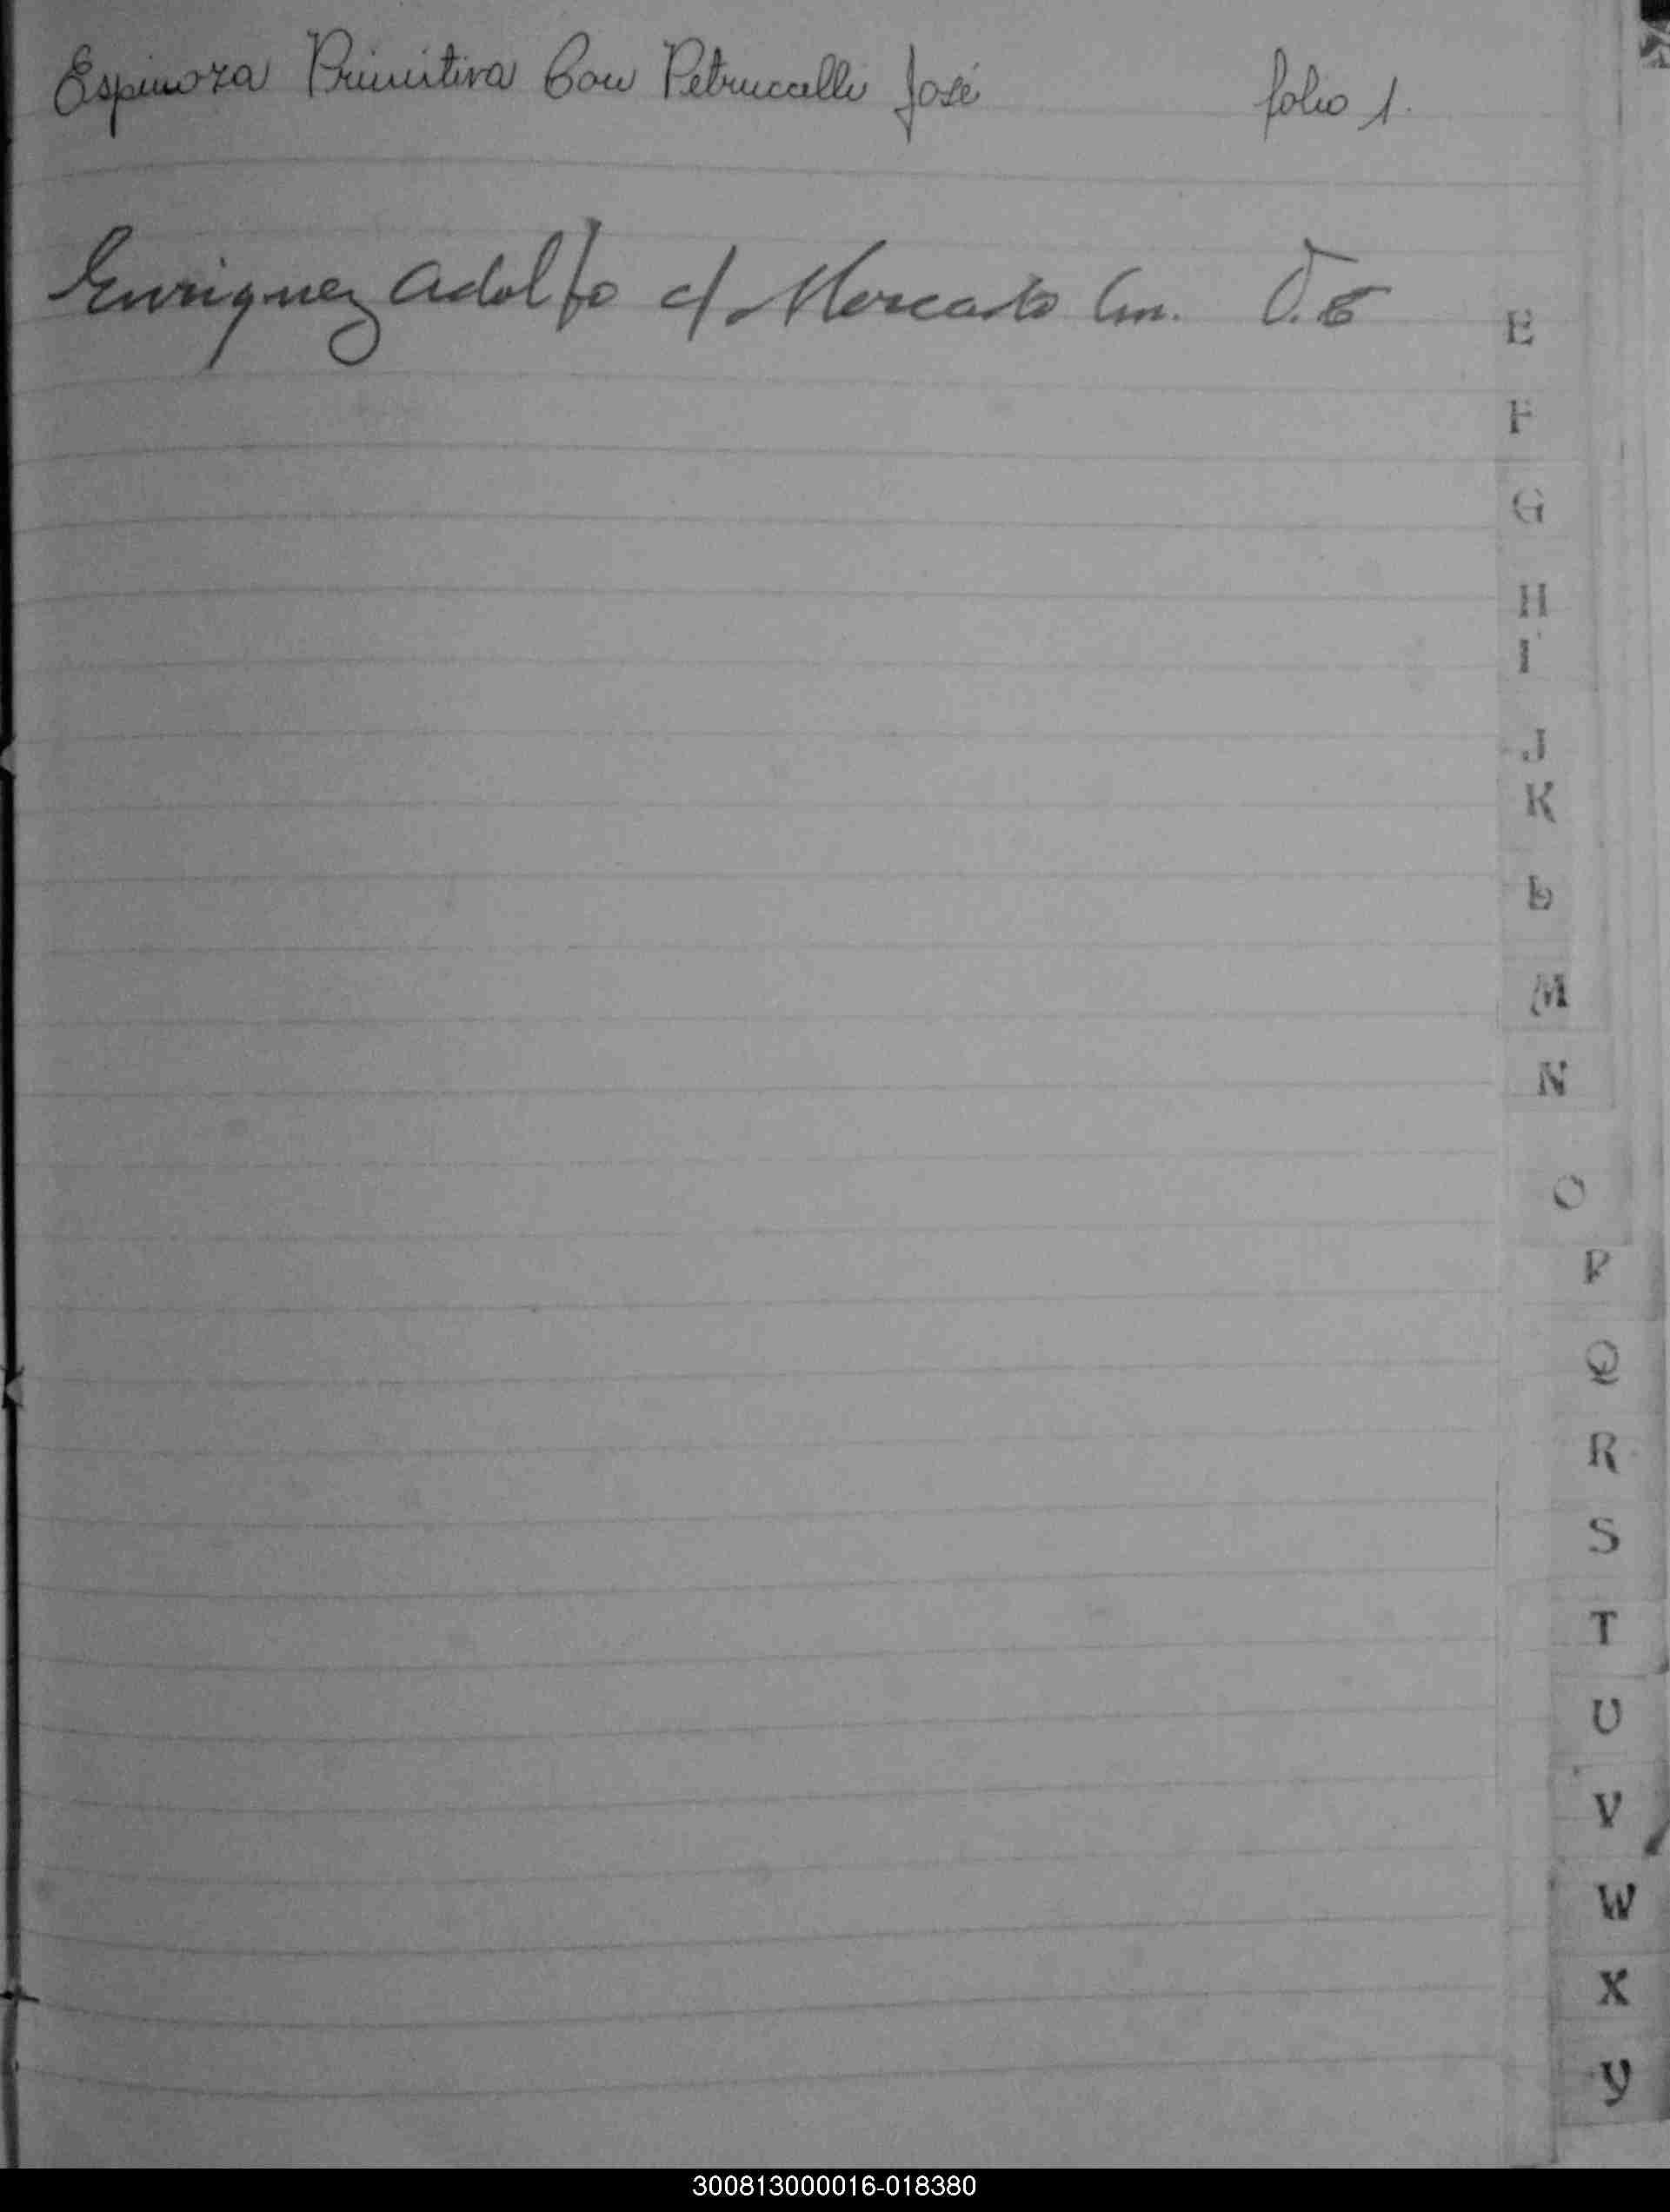 Espinoza Primitiva Con Petruccelli José folio 1.
Enriquez Adolfo c/ Mercado Cm.
E
F
G
H
I
J
K
L
M
N
O
P
Q
R
S
T
U
V
W
X
Y
300813000016-018380